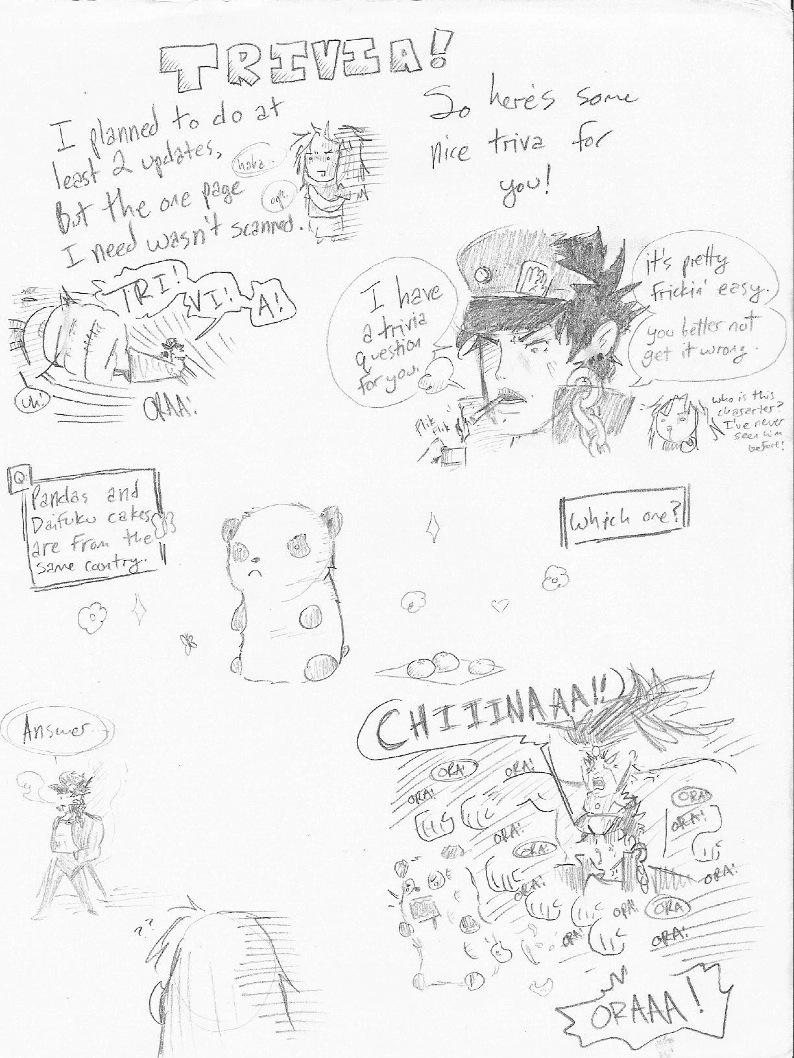 TRIVIA!
I planned to do at
least 2 updates,
But the one page
I need wasn't scanned.
haha.
ugh.
So here's some
nice triva for
you!
TRI!
VI!
A!
uh!
ORAA!
I have
a trivia
question
for you.
it's pretty
Frickin' easy.
you better not
get it wrong.
Flik
Flik
who is this
character?
I've never
seen him
before!
Q:
Pandas and
Daifuku cakes
are from the
same country.
Which one?
Answer.
??
CHIIINAAA!!
ORA!
ORA!
ORA!
ORA!
ORA!
ORA!
ORA!
ORA!
ORA!
ORA!
ORA
ORA!
ORA!
ORAAA!